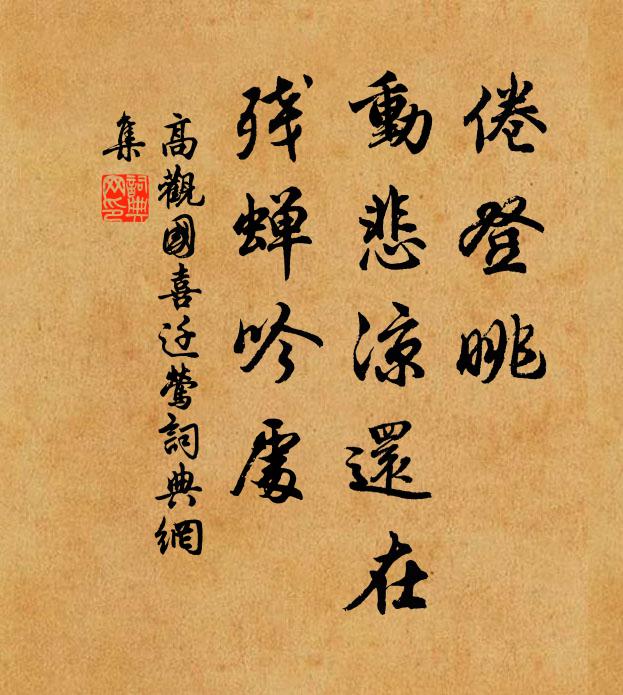 倦登眺
動悲涼還在
残蝉吟處
高觀國喜迁鶯詞典網
集
詞典
网印